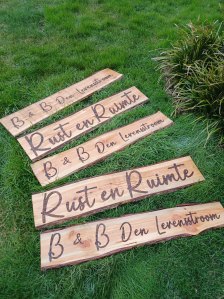 B & B Den Levensstroom
Rust en Ruimte
B & B Den Levensstroom
Rust en Ruimte
B & B Den Levensstroom